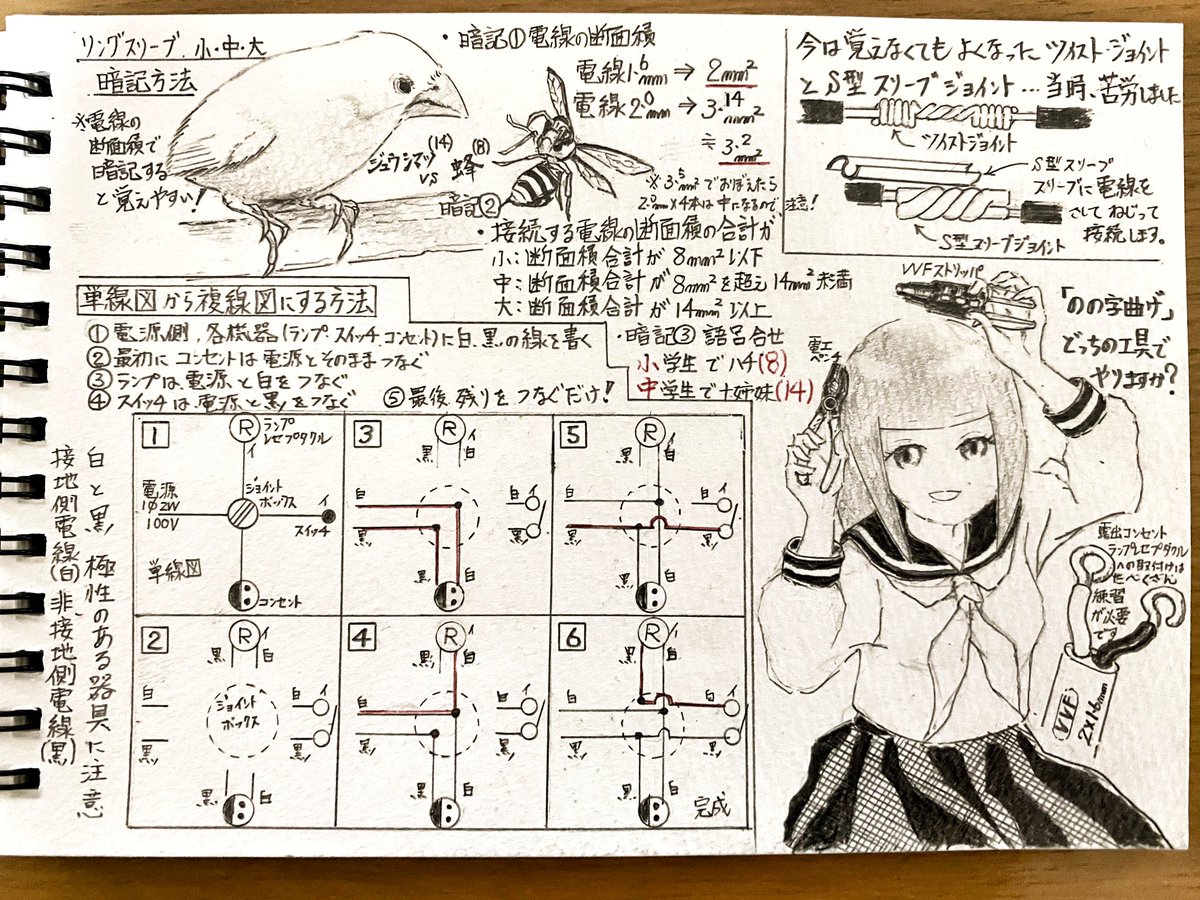 リングスリーブ 小・中・大
暗記方法
※電線の
断面積で
暗記する
と覚えやすい!
ジュウシマツ(14)
vs 蜂(8)
・暗記① 電線の断面積
電線1.6mm ⇒ 2mm²
電線2.0mm → 3.14mm²
≒ 3.2mm²
※3.5mm²でおぼえたら
2.0mm×4本は中になるので注意!
暗記②
・接続する電線の断面積の合計が
小:断面積合計が 8mm²以下
中:断面積合計が 8mm²を超え14mm²未満
大:断面積合計が 14mm²以上
・暗記③ 語呂合せ
小学生でハチ(8)
中学生で十姉妹(14)
今は覚えなくてもよくなった ツイスト・ジョイント
とS型スリーブジョイント…当時、苦労しました
ツイストジョイント
S型スリーブ
スリーブに電線を
さして ねじって
接続します。
S型スリーブジョイント
単線図から複線図にする方法
① 電源側、各機器(ランプ・スイッチ・コンセント)に白、黒の線を書く
② 最初に コンセントは電源とそのままつなぐ
③ ランプは電源と白をつなぐ
④ スイッチは電源と黒をつなぐ
⑤ 最後 残りをつなぐだけ!
白と黒 極性のある器具に注意
接地側電線(白) 非接地側電線(黒)
1
R
ランプ
レセプタクル
イ
電源
1φ2W
100V
ジョイント
ボックス
イ
スイッチ
単線図
コンセント
3
R
イ
黒
白
白
黒
白
イ
黒
黒
白
5
R
イ
黒
白
白
黒
白
イ
黒
黒
白
2
R
イ
黒
白
白
黒
ジョイント
ボックス
白
イ
黒
黒
白
4
R
イ
黒
白
白
黒
白
イ
黒
黒
白
6
R
イ
黒
白
白
黒
白
イ
黒
黒
白
完成
VVFストリッパ
電工
ペンチ
「のの字曲げ」
どっちの工具で
やりますか?
露出コンセント
ランプレセプタクル
への取付けは
たくさん
練習
が必要
です
VVF
2×1.6mm